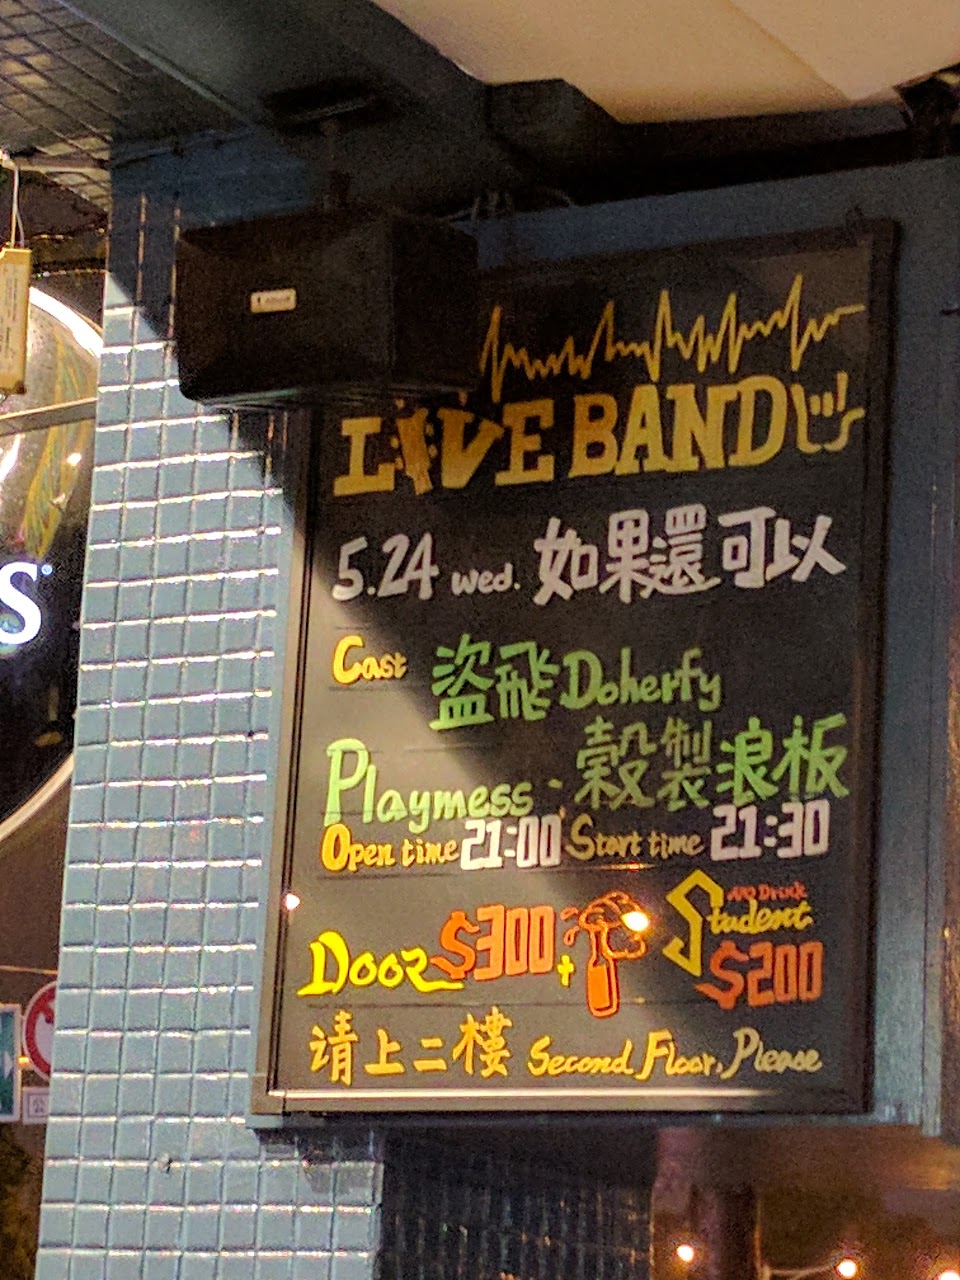 LIVE BAND
5.24 wed. 如果還可以
Cast 盜飛Doherfy
Playmess · 穀製浪板
Open time 21:00 Start time 21:30
Door $300 + Student NO Drink $200
请上二樓 Second Floor, Please
S